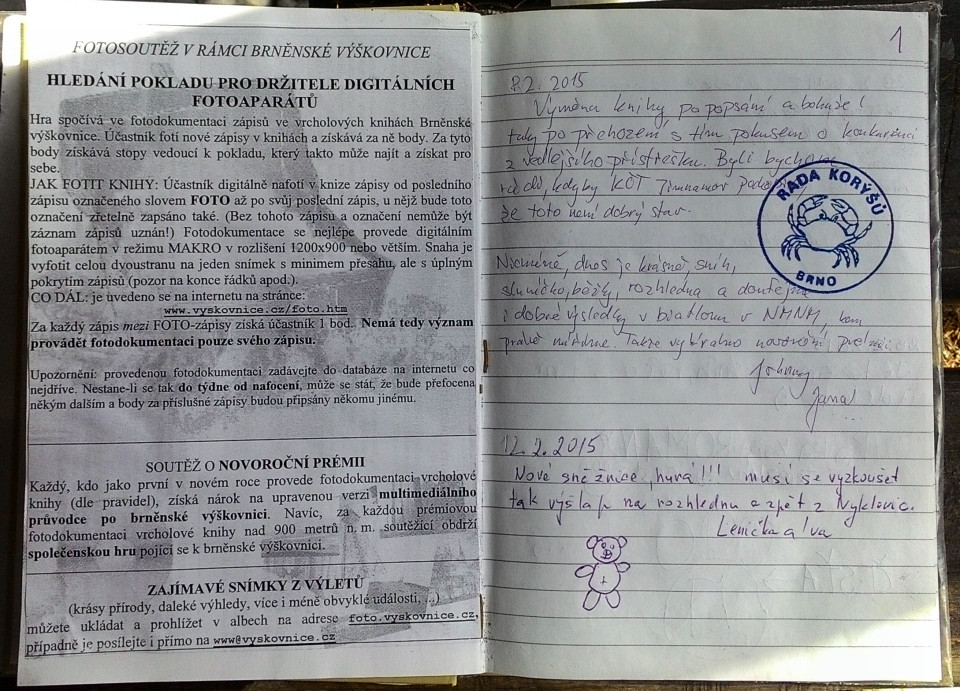 FOTOSOUTĚŽ V RÁMCI BRNĚNSKÉ VÝŠKOVNICE
HLEDÁNÍ POKLADU PRO DRŽITELE DIGITÁLNÍCH
FOTOAPARÁTŮ
Hra spočívá ve fotodokumentaci zápisů ve vrcholových knihách Brněnské
výškovnice. Účastník fotí nové zápisy v knihách a získává za ně body. Za tyto
body získává stopy vedoucí k pokladu, který takto může najít a získat pro
sebe.
JAK FOTIT KNIHY: Účastník digitálně nafotí v knize zápisy od posledního
zápisu označeného slovem FOTO až po svůj poslední zápis, u nějž bude toto
označení zřetelně zapsáno také. (Bez tohoto zápisu a označení nemůže být
záznam zápisů uznán!) Fotodokumentace se nejlépe provede digitálním
fotoaparátem v režimu MAKRO v rozlišení 1200x900 nebo větším. Snaha je
vyfotit celou dvoustranu na jeden snímek s minimem přesahu, ale s úplným
pokrytím zápisů (pozor na konce řádků apod.).
CO DÁL: je uvedeno se na internetu na stránce:
www.vyskovnice.cz/foto.htm
Za každý zápis mezi FOTO-zápisy získá účastník 1 bod. Nemá tedy význam
provádět fotodokumentaci pouze svého zápisu.
Upozornění: provedenou fotodokumentaci zadávejte do databáze na internetu co
nejdříve. Nestane-li se tak do týdne od nafocení, může se stát, že bude přefocena
někým dalším a body za příslušné zápisy budou připsány někomu jinému.
SOUTĚŽ O NOVOROČNÍ PRÉMII
Každý, kdo jako první v novém roce provede fotodokumentaci vrcholové
knihy (dle pravidel), získá nárok na upravenou verzi multimediálního
průvodce po brněnské výškovnici. Navíc, za každou prémiovou
fotodokumentaci vrcholové knihy nad 900 metrů n. m. soutěžící obdrží
společenskou hru pojící se k brněnské výškovnici.
ZAJÍMAVÉ SNÍMKY Z VÝLETŮ
(krásy přírody, daleké výhledy, více i méně obvyklé události, ...)
můžete ukládat a prohlížet v albech na adrese foto.vyskovnice.cz,
případně je posílejte i přímo na www@vyskovnice.cz
1
8.2. 2015
Výměna knihy po popsání a bohužel
taky po přechozem s tím pokusem o konkurenci
z vedlejšího přístřešku. Byli bychom
rádi, kdyby KČT
že toto není dobrý stav.
RADA KORÝŠŮ
BRNO
Nicméně, dnes je krásně, sníh,
sluníčko, běžky, rozhledna a doufejme
i dobré výsledky v biatlonu v NMNM, kam
právě míříme. Takže
Johnny
Jana
12.2.2015
Nové sněžnice, hurá!!! musí se vyzkoušet
tak výšlap na rozhlednu a zpět z Nyklovic.
Lenička a Iva